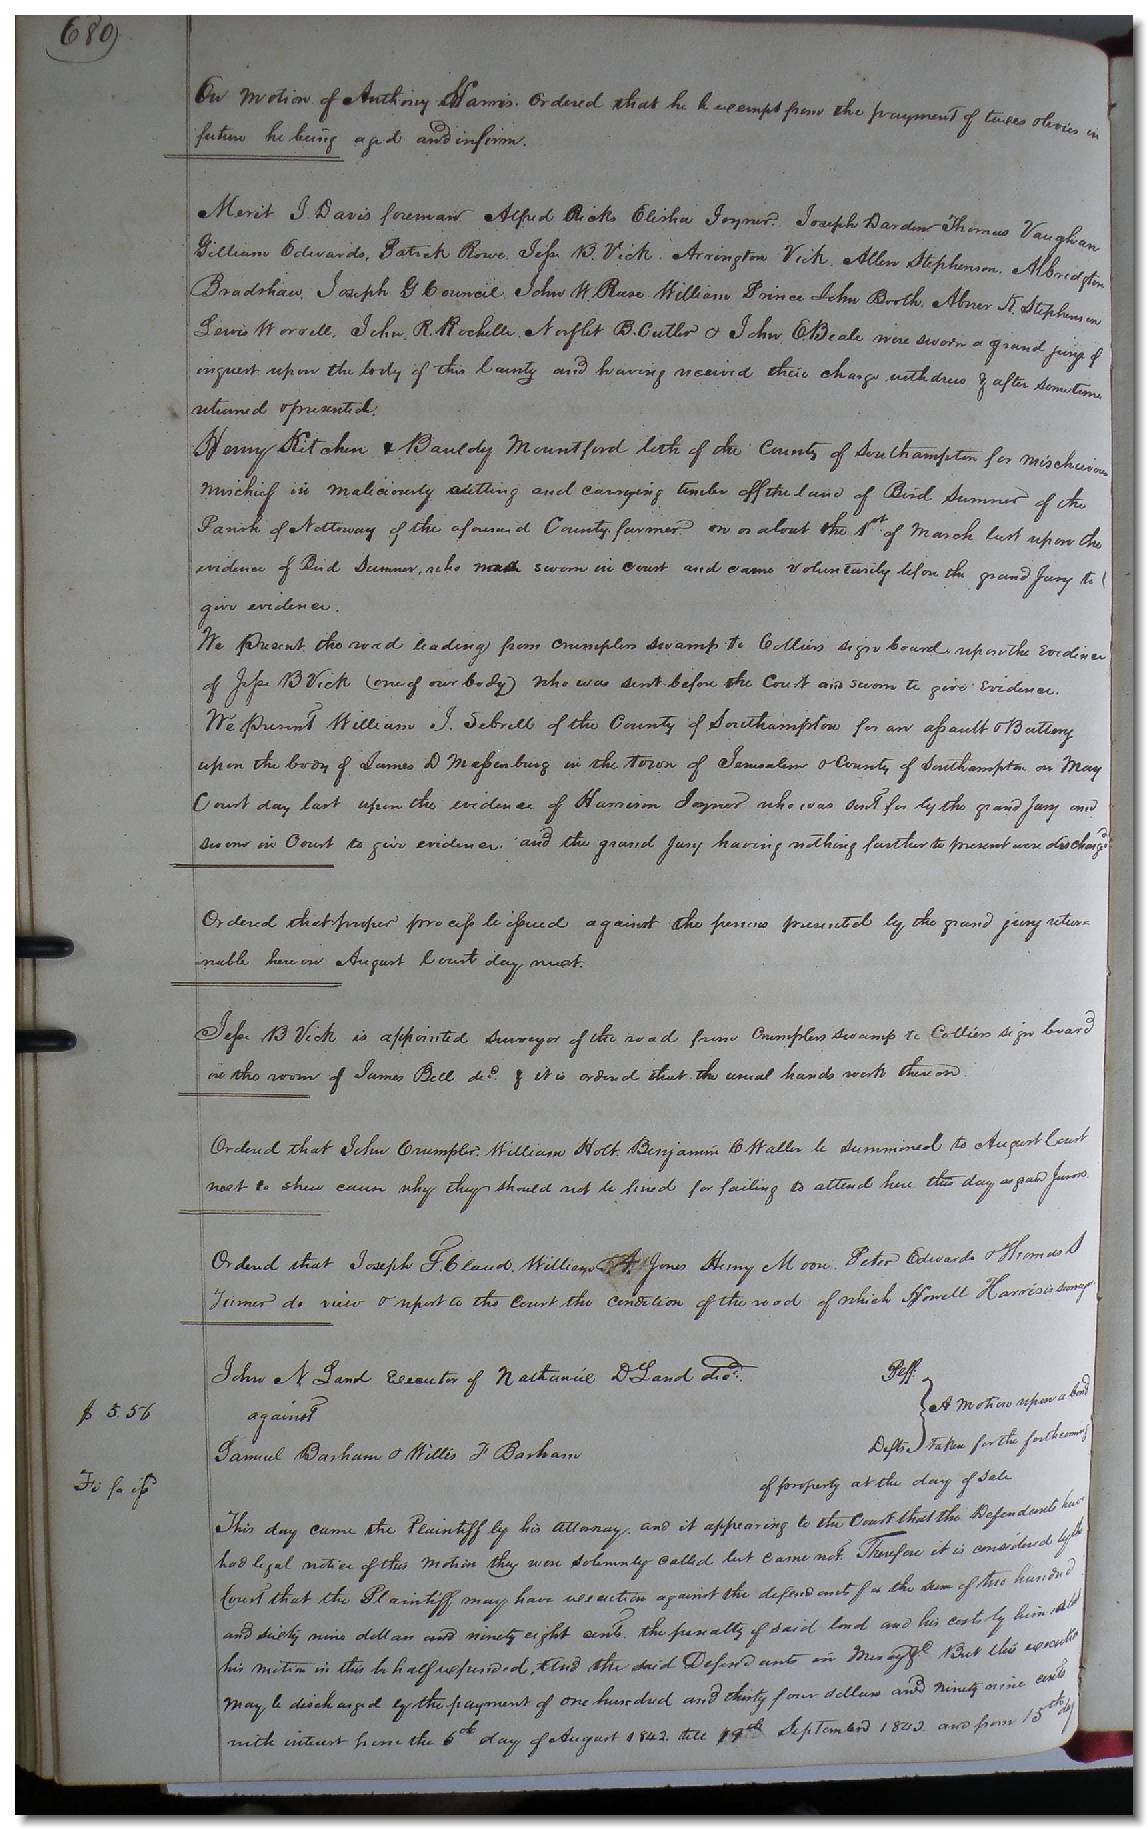 680
On motion of Anthony Harris. Ordered that he be exempt from the payment of taxes & levies in
future he being aged and infirm.
Merit J Davis foreman Alfred Ricks Elisha Joyner. Joseph Darden Thomas Vaughan
Gilliam Edwards, Patrick Rowe. Jesse B. Vick. Arrington Vick. Allen Stephenson. Albridgton
Bradshaw, Joseph G Council, John W. Rose William Prince John Booth. Abner K. Stephenson
Lewis Worrell, John. R. Rochelle. Norflet B. Cutler & John E Beale were sworn a grand jury of
inquest upon the body of this County and having received their charge withdrew & after sometime
returned & presented.
Henry Kitchen & Bauldy Mountford both of the County of Southampton for mischievous
mischief in maliciously cutting and carrying timber off the land of Bird Sumner of the
Parish of Nottoway of the aforesaid County farmer on or about the 1st of March last upon the
evidence of Bird Sumner, who was sworn in court and came voluntarily before the grand Jury to
give evidence.
We Present the road leading from Crumplers swamp to Colliers sign board, upon the Evidence
of Jesse B Vick (one of our body) who was sent before the Court and sworn to give Evidence.
We Present William J. Sebrell of the County of Southampton for an assault & Battery
upon the body of James D Massenburg in the town of Jerusalem & County of Southampton on May
Court day last upon the evidence of Harrison Joyner who was sent for by the grand Jury and
sworn in Court to give evidence. and the grand Jury having nothing further to present were dischargd
Ordered that proper process be issued against the persons presented by the grand jury retur=
=nable here on August Court day next.
Jesse B Vick is appointed surveyor of the road from Crumplers swamp to Colliers sign board
in the room of James Bell decd. & it is ordered that the usual hands work thereon
Ordered that John Crumpler. William Holt. Benjamin C Waller be summoned to August Court
next to shew cause why they should not be fined for failing to attend here this day as grand Jurors.
Ordered that Joseph T. Claud. William A. Jones Henry Moon. Peter Edwards & Thomas S
Turner do view & report to the Court the condition of the road of which Howell Harris is survyr.
John N Land Executor of Nathaniel D Land decd. Plff.
$ 5.56
against
A motion upon a bond
Samuel Barham & Willis F Barham Defts. taken for the forthcoming
Fi fa issd
of property at the day of sale
This day came the Plaintiff by his attorney, and it appearing to the Court that the Defendants have
had legal notice of this motion they were solemnly called but came not. Therefore it is considered by the
Court that the Plaintiff may have execution against the defendants for the sum of two hundred
and sixty nine dollars and ninety eight cents. the penalty of said bond and his costs by him about
his motion in this behalf expended, And the said Defendants in Mercy &c But this execution
may be discharged by the payment of one hundred and thirty four dollars and ninety nine cents
with interest from the 6th day of August 1842. till 19th September 1842. and from 15th day